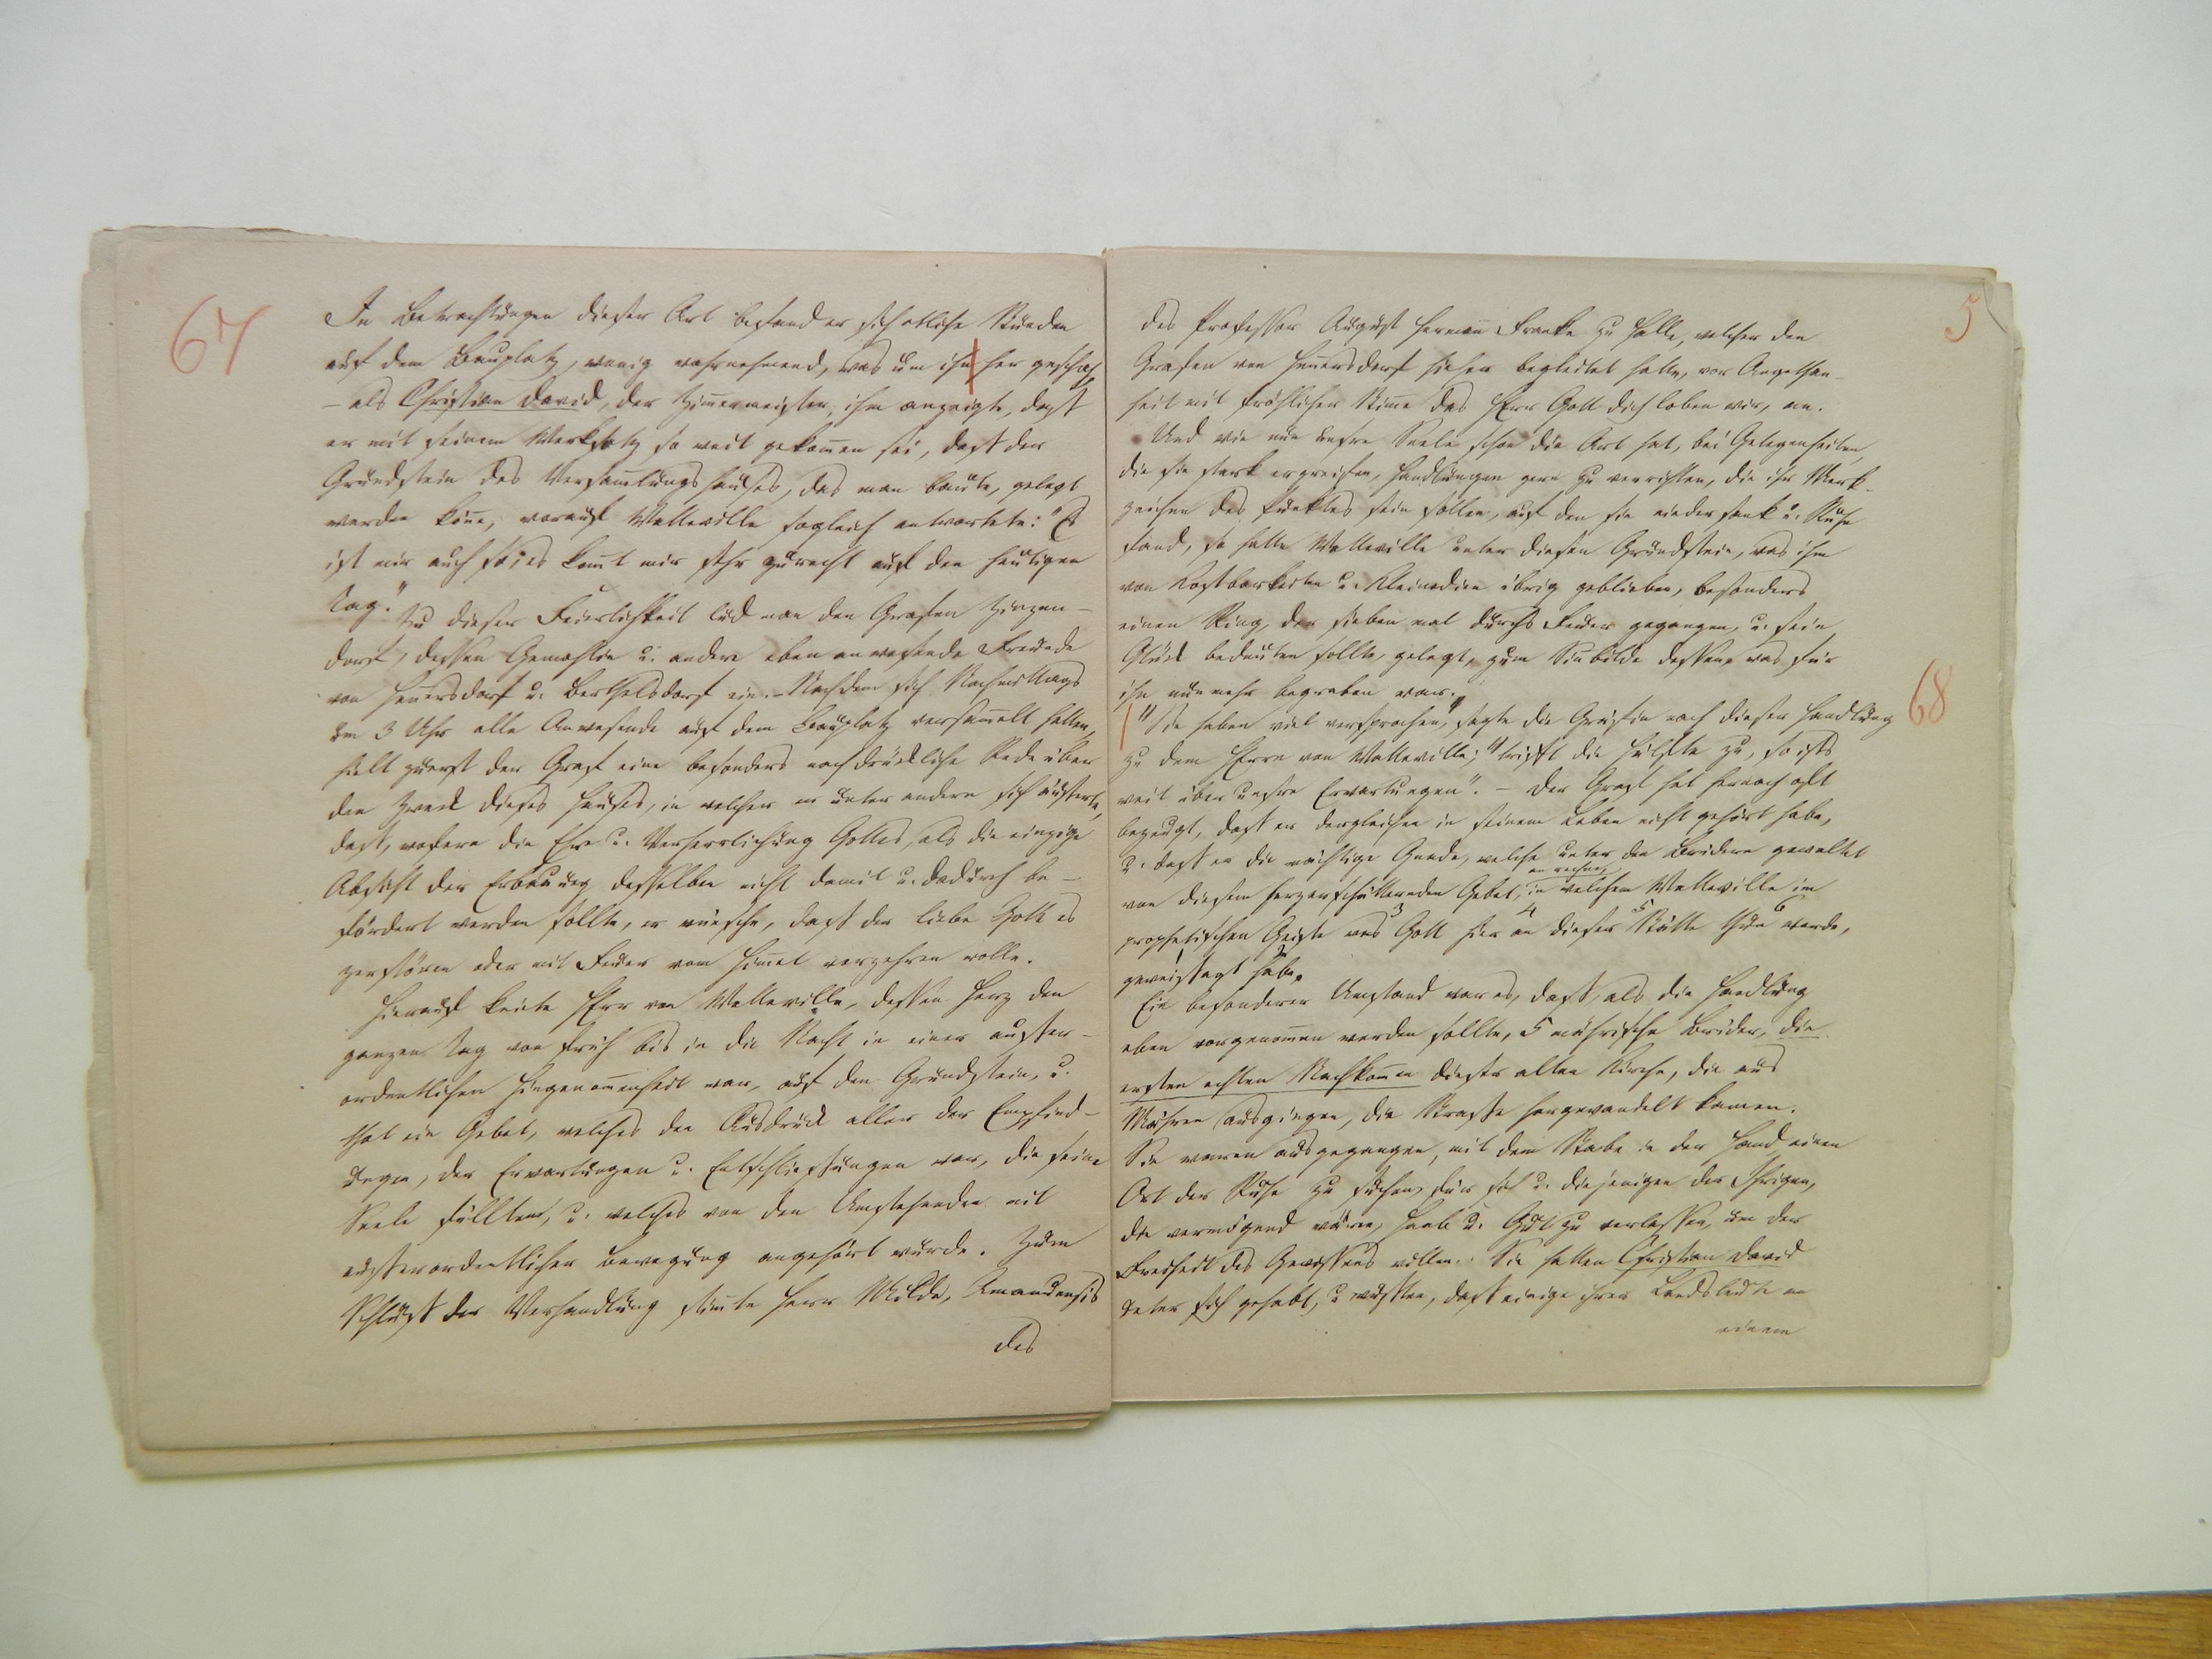 67
In Betrachtungen dieser Art befand er sich etliche Stunden
auf dem Bauplatz, wenig wahrnehmend, was um ihn her geschah,
– als Christian David, der Zim̄ermeister, ihm anzeigte, dass
er mit seinem Werksatz so weit gekom̄en sei, dass der
Grundstein des Versam̄lungshauses, das man baute, gelegt
werden kön̄e, worauf Watteville sogleich antwortete: "Es
ist mir auch so; es kom̄t mir sehr zurecht auf den heutigen
Tag."
Zu dieser Feierlichkeit lud man den Grafen Zinzen-
dorf, dessen Gemahlin u. andere eben anwesende Freunde
von Hen̄ersdorf u. Berthelsdorf ein. – Nachdem sich Nachmittags
um 3 Uhr alle Anwesende auf dem Bauplatz versam̄elt hatten,
hielt zuerst der Graf eine besonders nachdrückliche Rede über
den Zweck dieses Hauses, in welcher er unter andern sich äusserte,
dass, wofern die Ehre u. Verherrlichung Gottes, als die einzige
Absicht der Erbauung desselben nicht damit u. dadurch be-
fördert werden sollte, er wünsche, dass der liebe Gott es
zerstören oder mit Feuer vom Him̄el verzehren wolle.
Hierauf kniete Herr von Watteville, dessen Herz den
ganzen Tag von früh bis in die Nacht in einer ausser-
ordentlichen Hingenom̄enheit war, auf den Grundstein, u.
that ein Gebet, welches der Ausdruck aller der Empfind-
ungen, der Erwartungen u. Entschliessungen war, die seine
Seele füllten, u. welches von den Umstehenden mit
ausserordentlicher Bewegung angehört wurde. Zum
Schluss der Verhandlung stim̄te Herr Milde, Amanuensis
des
5
des Professor August Herman̄ Franke zu Halle, welcher den
Grafen von Hen̄ersdorf hieher begleitet hatte, vor Angethan-
heit mit fröhlicher Stim̄e das Herr Gott dich loben wir, an.
Und wie nun unsre Seele schon die Art hat, bei Gelegenheiten,
die sie stark ergreifen, Handlungen gern zu verrichten, die ihr Merk-
zeichen des Punktes sein sollen, auf den sie niedersank u. Ruhe
fand, so hatte Watteville unter diesen Grundstein, was ihm
von Kostbarkeiten u. Kleinodien übrig geblieben, besonders
einen Ring, der sieben mal durchs Feuer gegangen, u. sein
Glück bedeuten sollte, gelegt, zum Sin̄bilde dessen, was für
ihn nunmehr begraben war.
68
"Sie haben viel versprochen", sagte die Gräfin nach dieser Handlung
zu dem Herrn von Watteville; "trifft die Hälfte zu, so ists
weit über unsre Erwartungen". – Der Graf hat hernach oft
bezeugt, dass er dergleichen in seinem Leben nicht gehört habe,
u. dass er die mächtige Gnade, welche unter den Brüdern gewaltet
von diesem herzerschütternden Gebet, in welchem Watteville im
prophetischen Geiste was 3 Gott hier 4 an dieser 5 Stätte thun 6 werde,
geweissagt 1 habe 2.
Ein besonderer Umstand war es, dass, als die Handlung
eben vorgenom̄en werden sollte, 5 mährische Brüder, die
ersten echten Nachkom̄en dieser alten Kirche, die aus
Mähren ausgingen, die Strasse hergewandelt kamen.
Sie waren ausgegangen, mit dem Stabe in der Hand, einen
Ort der Ruhe zu suchen für sich u. diejenigen der Ihrigen,
die vermögend wären, Haab u. Gut zu verlassen, um der
Freiheit des Gewissens willen. Sie hatten Christian David
unter sich gehabt, u wussten, dass einige ihrer Landsleute an
einem